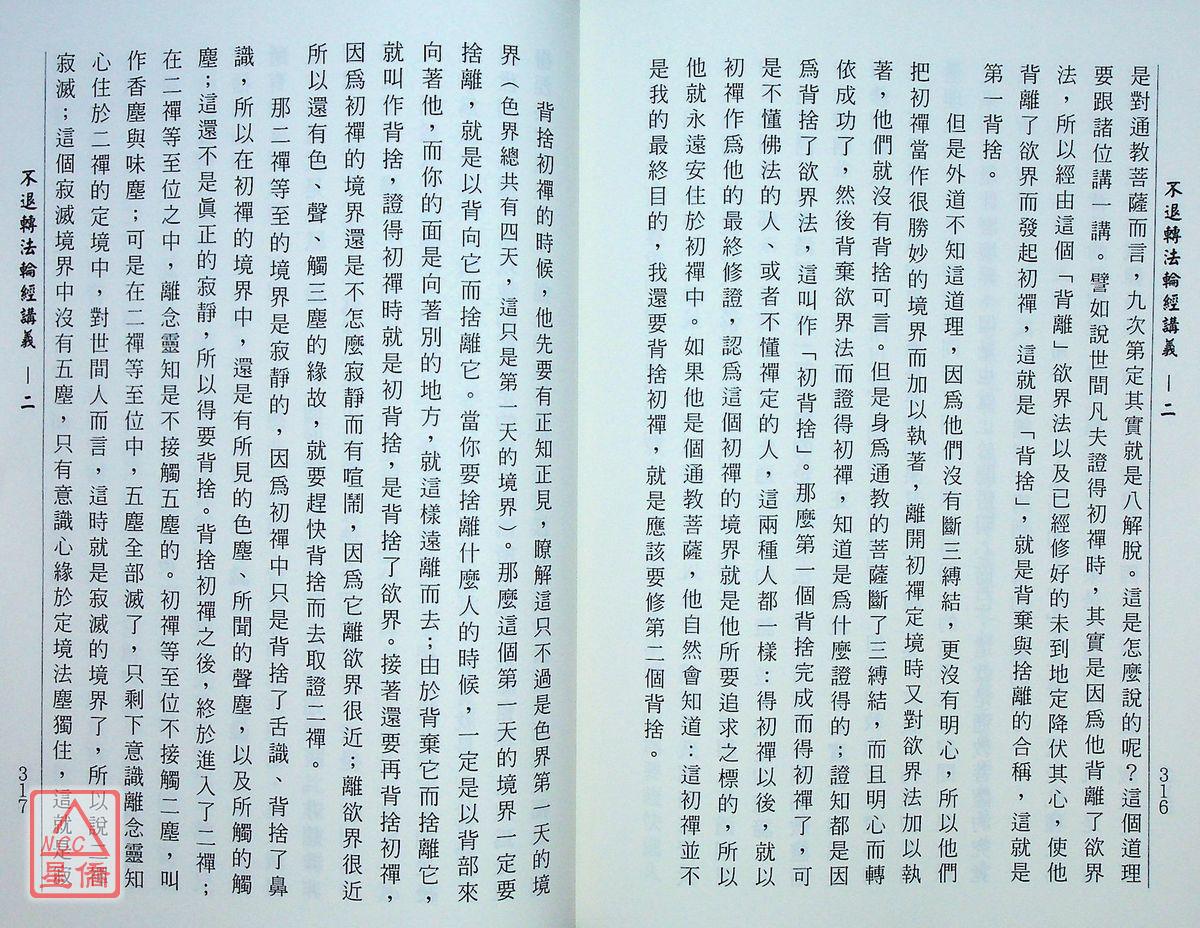 不退轉法輪經講義 — 二
316
是對通教菩薩而言，九次第定其實就是八解脫。這是怎麼說的呢？這個道理
要跟諸位講一講。譬如說世間凡夫證得初禪時，其實是因爲他背離了欲界
法，所以經由這個「背離」欲界法以及已經修好的未到地定降伏其心，使他
背離了欲界而發起初禪，這就是「背捨」，就是背棄與捨離的合稱，這就是
第一背捨。
但是外道不知這道理，因爲他們沒有斷三縛結，更沒有明心，所以他們
把初禪當作很勝妙的境界而加以執著，離開初禪定境時又對欲界法加以執
著，他們就沒有背捨可言。但是身爲通教的菩薩斷了三縛結，而且明心而轉
依成功了，然後背棄欲界法而證得初禪，知道是爲什麼證得的；證知都是因
爲背捨了欲界法，這叫作「初背捨」。那麼第一個背捨完成而得初禪了，可
是不懂佛法的人、或者不懂禪定的人，這兩種人都一樣：得初禪以後，就以
初禪作爲他的最終修證，認爲這個初禪的境界就是他所要追求之標的，所以
他就永遠安住於初禪中。如果他是個通教菩薩，他自然會知道：這初禪並不
是我的最終目的，我還要背捨初禪，就是應該要修第二個背捨。
背捨初禪的時候，他先要有正知正見，瞭解這只不過是色界第一天的境
界（色界總共有四天，這只是第一天的境界）。那麼這個第一天的境界一定要
捨離，就是以背向它而捨離它。當你要捨離什麼人的時候，一定是以背部來
向著他，而你的面是向著別的地方，就這樣遠離而去；由於背棄它而捨離它，
就叫作背捨，證得初禪時就是初背捨，是背捨了欲界。接著還要再背捨初禪，
因爲初禪的境界還是不怎麼寂靜而有喧鬧，因爲它離欲界很近；離欲界很近
所以還有色、聲、觸三塵的緣故，就要趕快背捨而去取證二禪。
那二禪等至的境界是寂靜的，因爲初禪中只是背捨了舌識、背捨了鼻
識，所以在初禪的境界中，還是有所見的色塵、所聞的聲塵，以及所觸的觸
塵；這還不是眞正的寂靜，所以得要背捨。背捨初禪之後，終於進入了二禪；
在二禪等至位之中，離念靈知是不接觸五塵的。初禪等至位不接觸二塵，叫
作香塵與味塵；可是在二禪等至位中，五塵全部滅了，只剩下意識離念靈知
心住於二禪的定境中，對世間人而言，這時就是寂滅的境界了，所以說二禪
寂滅；這個寂滅境界中沒有五塵，只有意識心緣於定境法塵獨住，這就是寂
不退轉法輪經講義 — 二
317
NCC
星僑